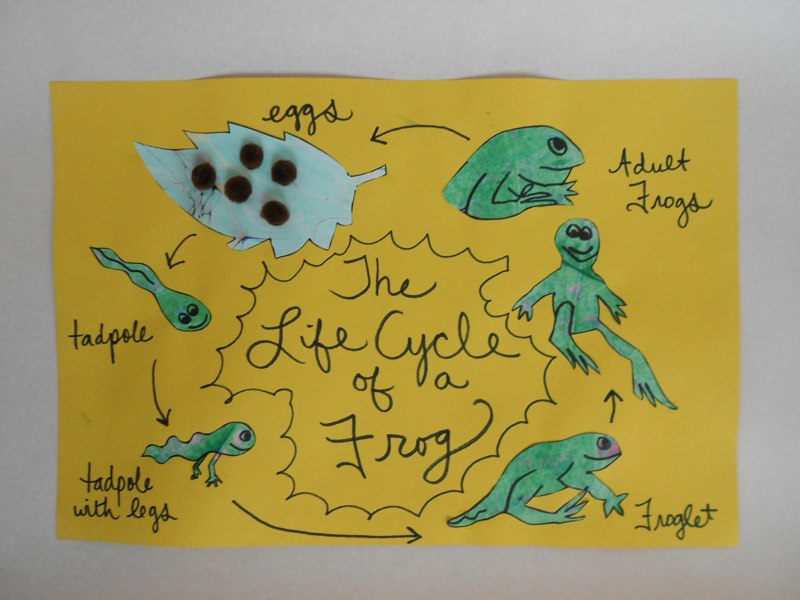 eggs
Adult
Frogs
The
Life Cycle
of a
Frog
tadpole
tadpole
with legs
Froglet